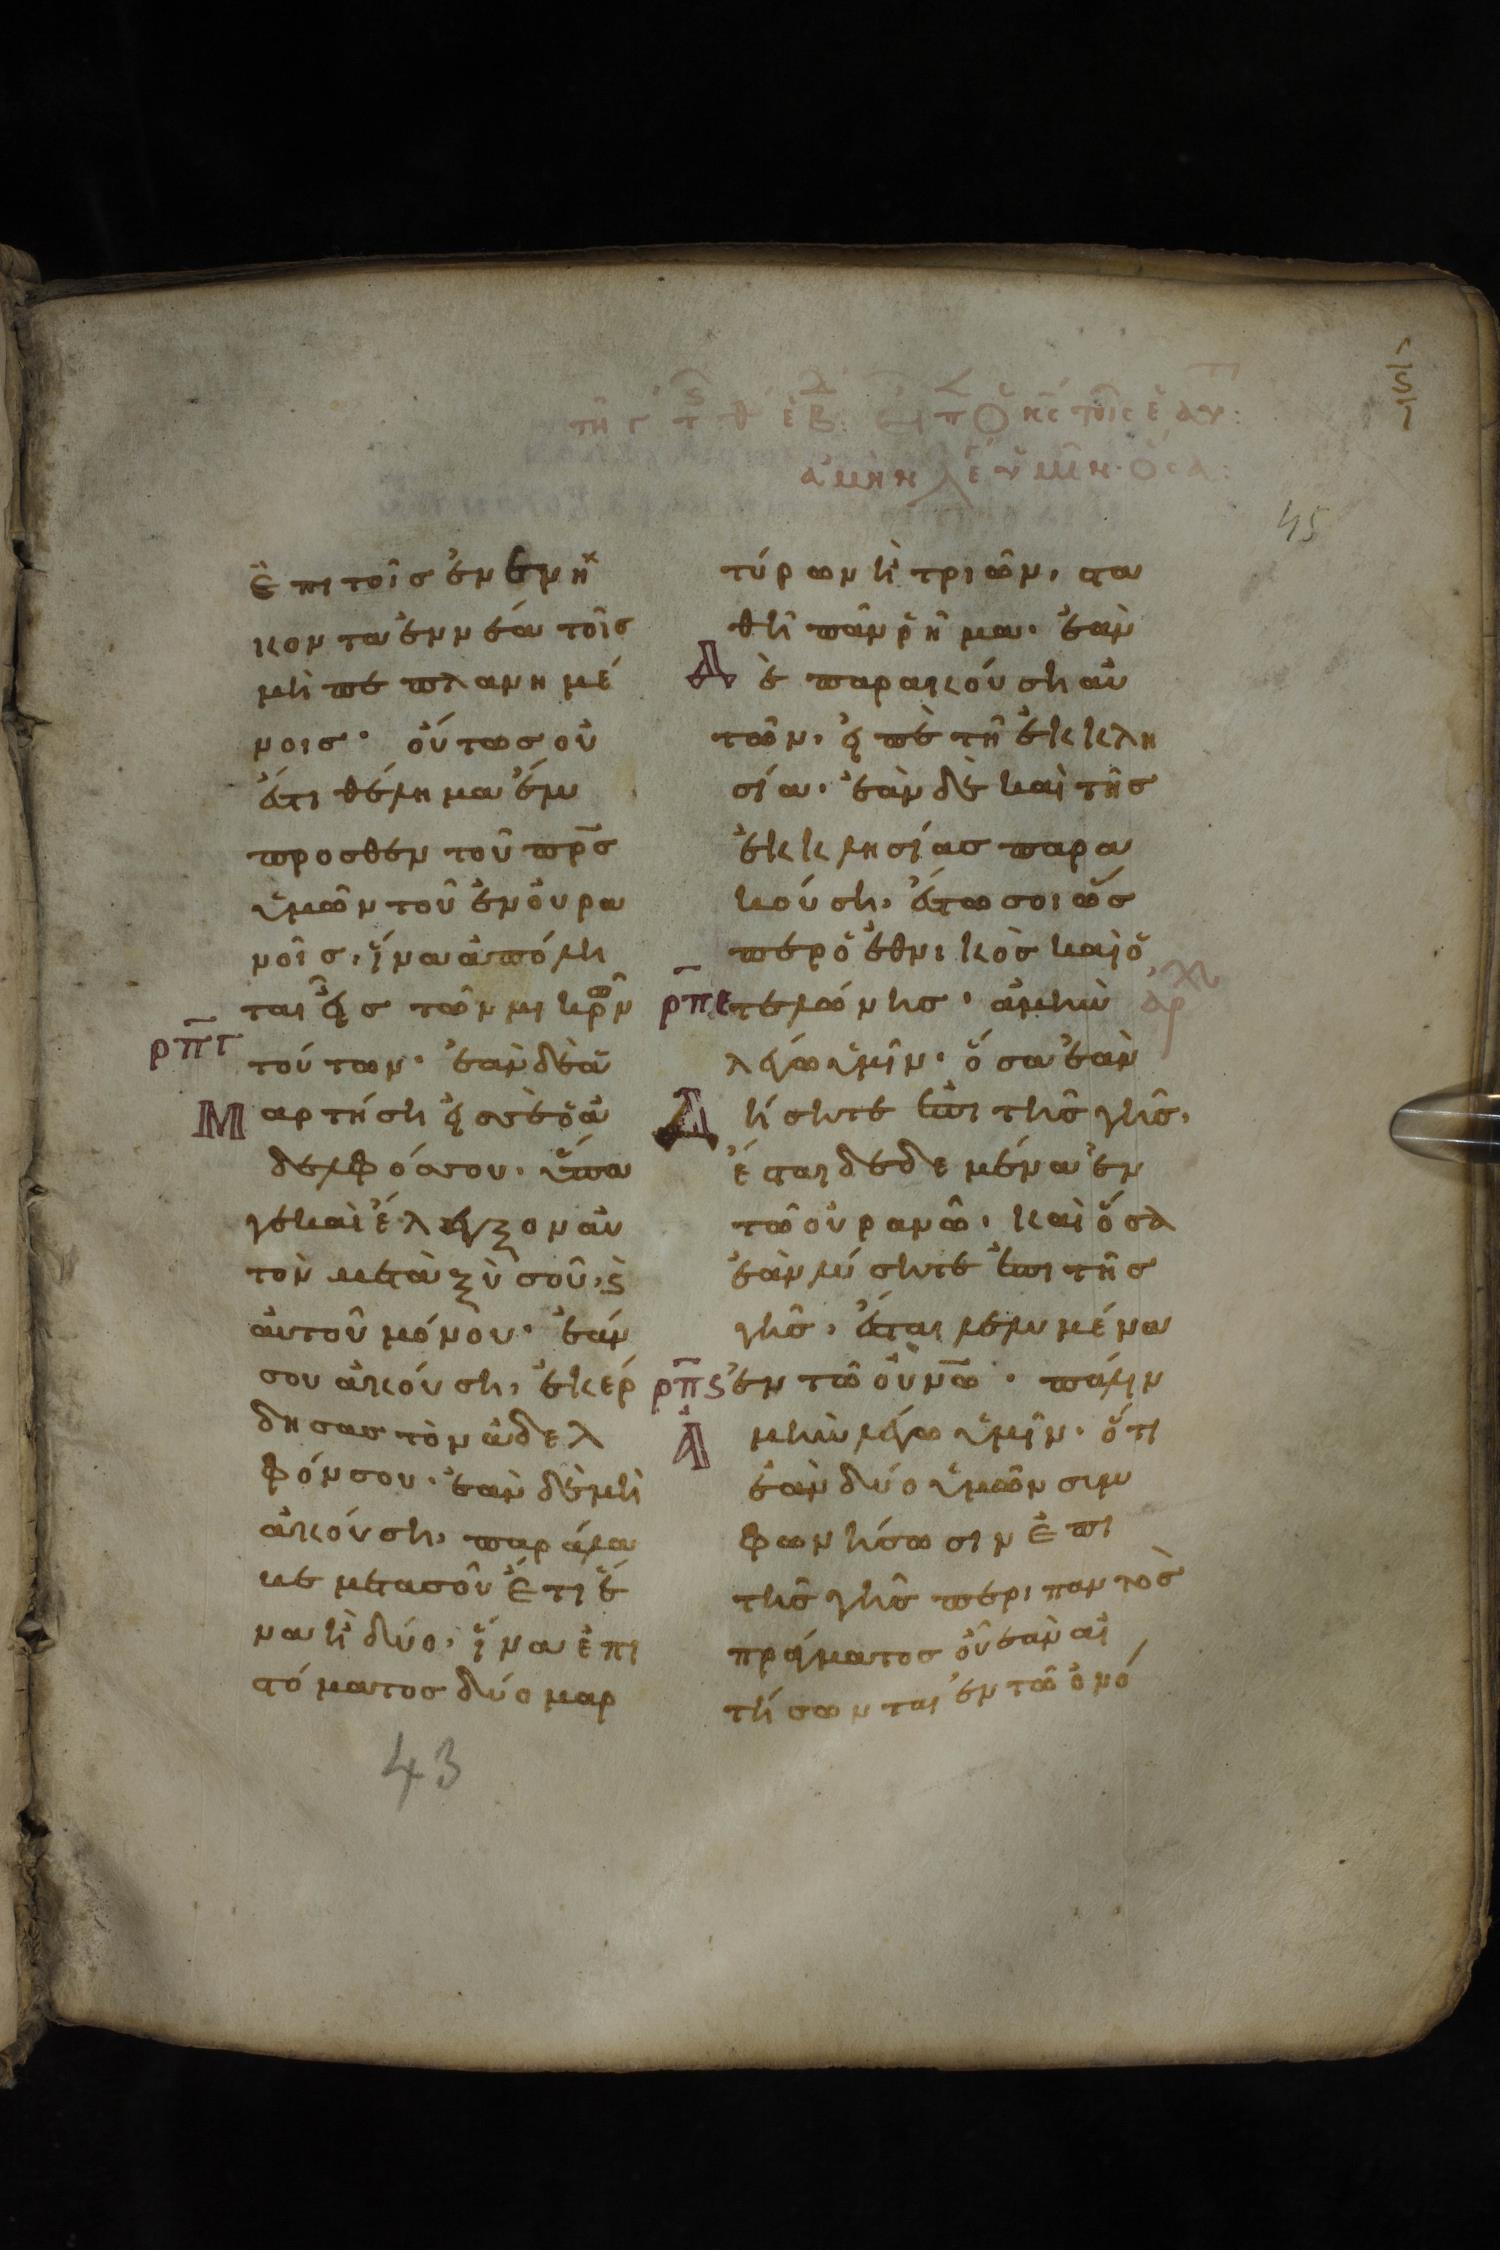 τῆ γ τ θ ἐ β: Ειπ ὁ κς τοῖς ἑ αυ:
ἀμὴν λέ ὑμῖν· ὅσα:
45
ἐπι τοῖσ ἐνενή
κοντα ἐννέα τοῖσ
μὴ πεπλανημέ
νοισ· οὕτωσ οὐκ
ἔστι θέλημα ἔμ
προσθεν τοῦ πρ̅σ
ὑμῶν τοῦ ἐν οὐρα
νοῖσ, ἵνα ἀπόλη
ται εἷσ τῶν μικρῶν
ρπγ
τούτων· ἐὰν δὲ ἁ
Μαρτήση εἰσ σὲ ὁ ἀ
δελφόσ σου· ὕπα
γε καὶ ἔλεγξον αὐ
τὸν μεταξὺ σοῦ, ϗ
ἀυτοῦ μόνου· ἐάν
σου ἀκούση, ἐκέρ
δησασ τὸν ἀδελ
φόν σου· ἐὰν δὲ μὴ
ἀκούση, παράλα
βε μετασοῦ ἔτι ἕ
να ἢ δύο, ἵνα ἐπι
στόματοσ δύο μαρ
43
τύρων ἢ τριῶν, στα
θῆ πᾶν ῥῆμα· ἐὰν
Δὲ παρακούση αὐ
τῶν, εἰπὲ τῆ ἐκκλη
σία· ἐὰν δὲ καὶ τῆσ
ἐκκλησίασ παρα
κούση, ἔστω σοι ὥσ
περ ὁ ἐθνικὸσ καὶ ὁ
ρπε
τελώνησ· ἀμὴν ἀρχ
λέγω ὑμῖν· ὅσα ἐὰν
Δήσητε ἐπι τῆσ γῆσ,
ἔσται δεδεμένα ἐν
τῶ οὐρανῶ· καὶ ὅσα
ἐὰν λύσητε ἐπι τῆσ
γῆσ, ἔσται λελυμένα
ρπς
ἐν τῶ οὐν̅ω· πάλιν
Ἀμὴν λέγω ὑμῖν· ὅτι
ἐὰν δύο ὑμῶν συμ
φωνήσωσιν ἐπι
τῆσ γῆσ περι παντὸσ
πράγματοσ οὗ ἐὰν αἰ
τήσωνται ἐν τῶ ὀνό